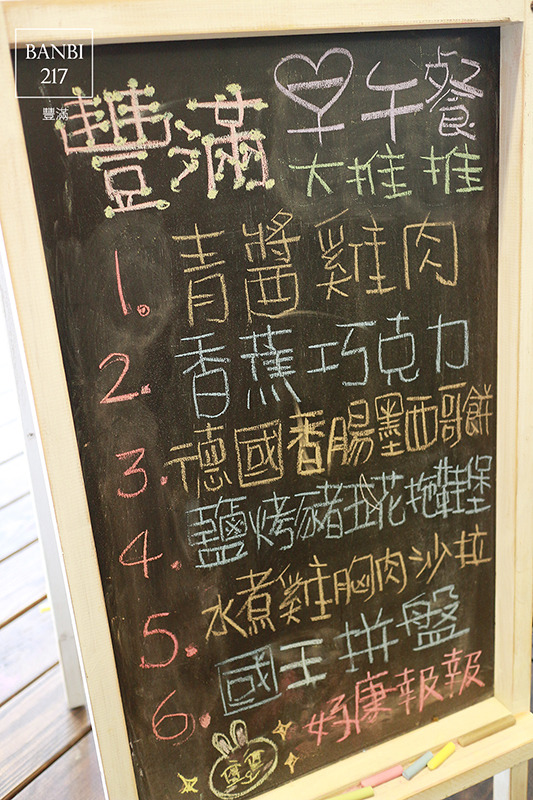 BANBI
217
豐滿
豐滿早午餐
大推推
1. 青醬雞肉
2. 香蕉巧克力
3. 德國香腸墨西哥餅
4. 鹽烤豬五花拖鞋堡
5. 水煮雞胸肉沙拉
6. 國王拼盤
好康報報